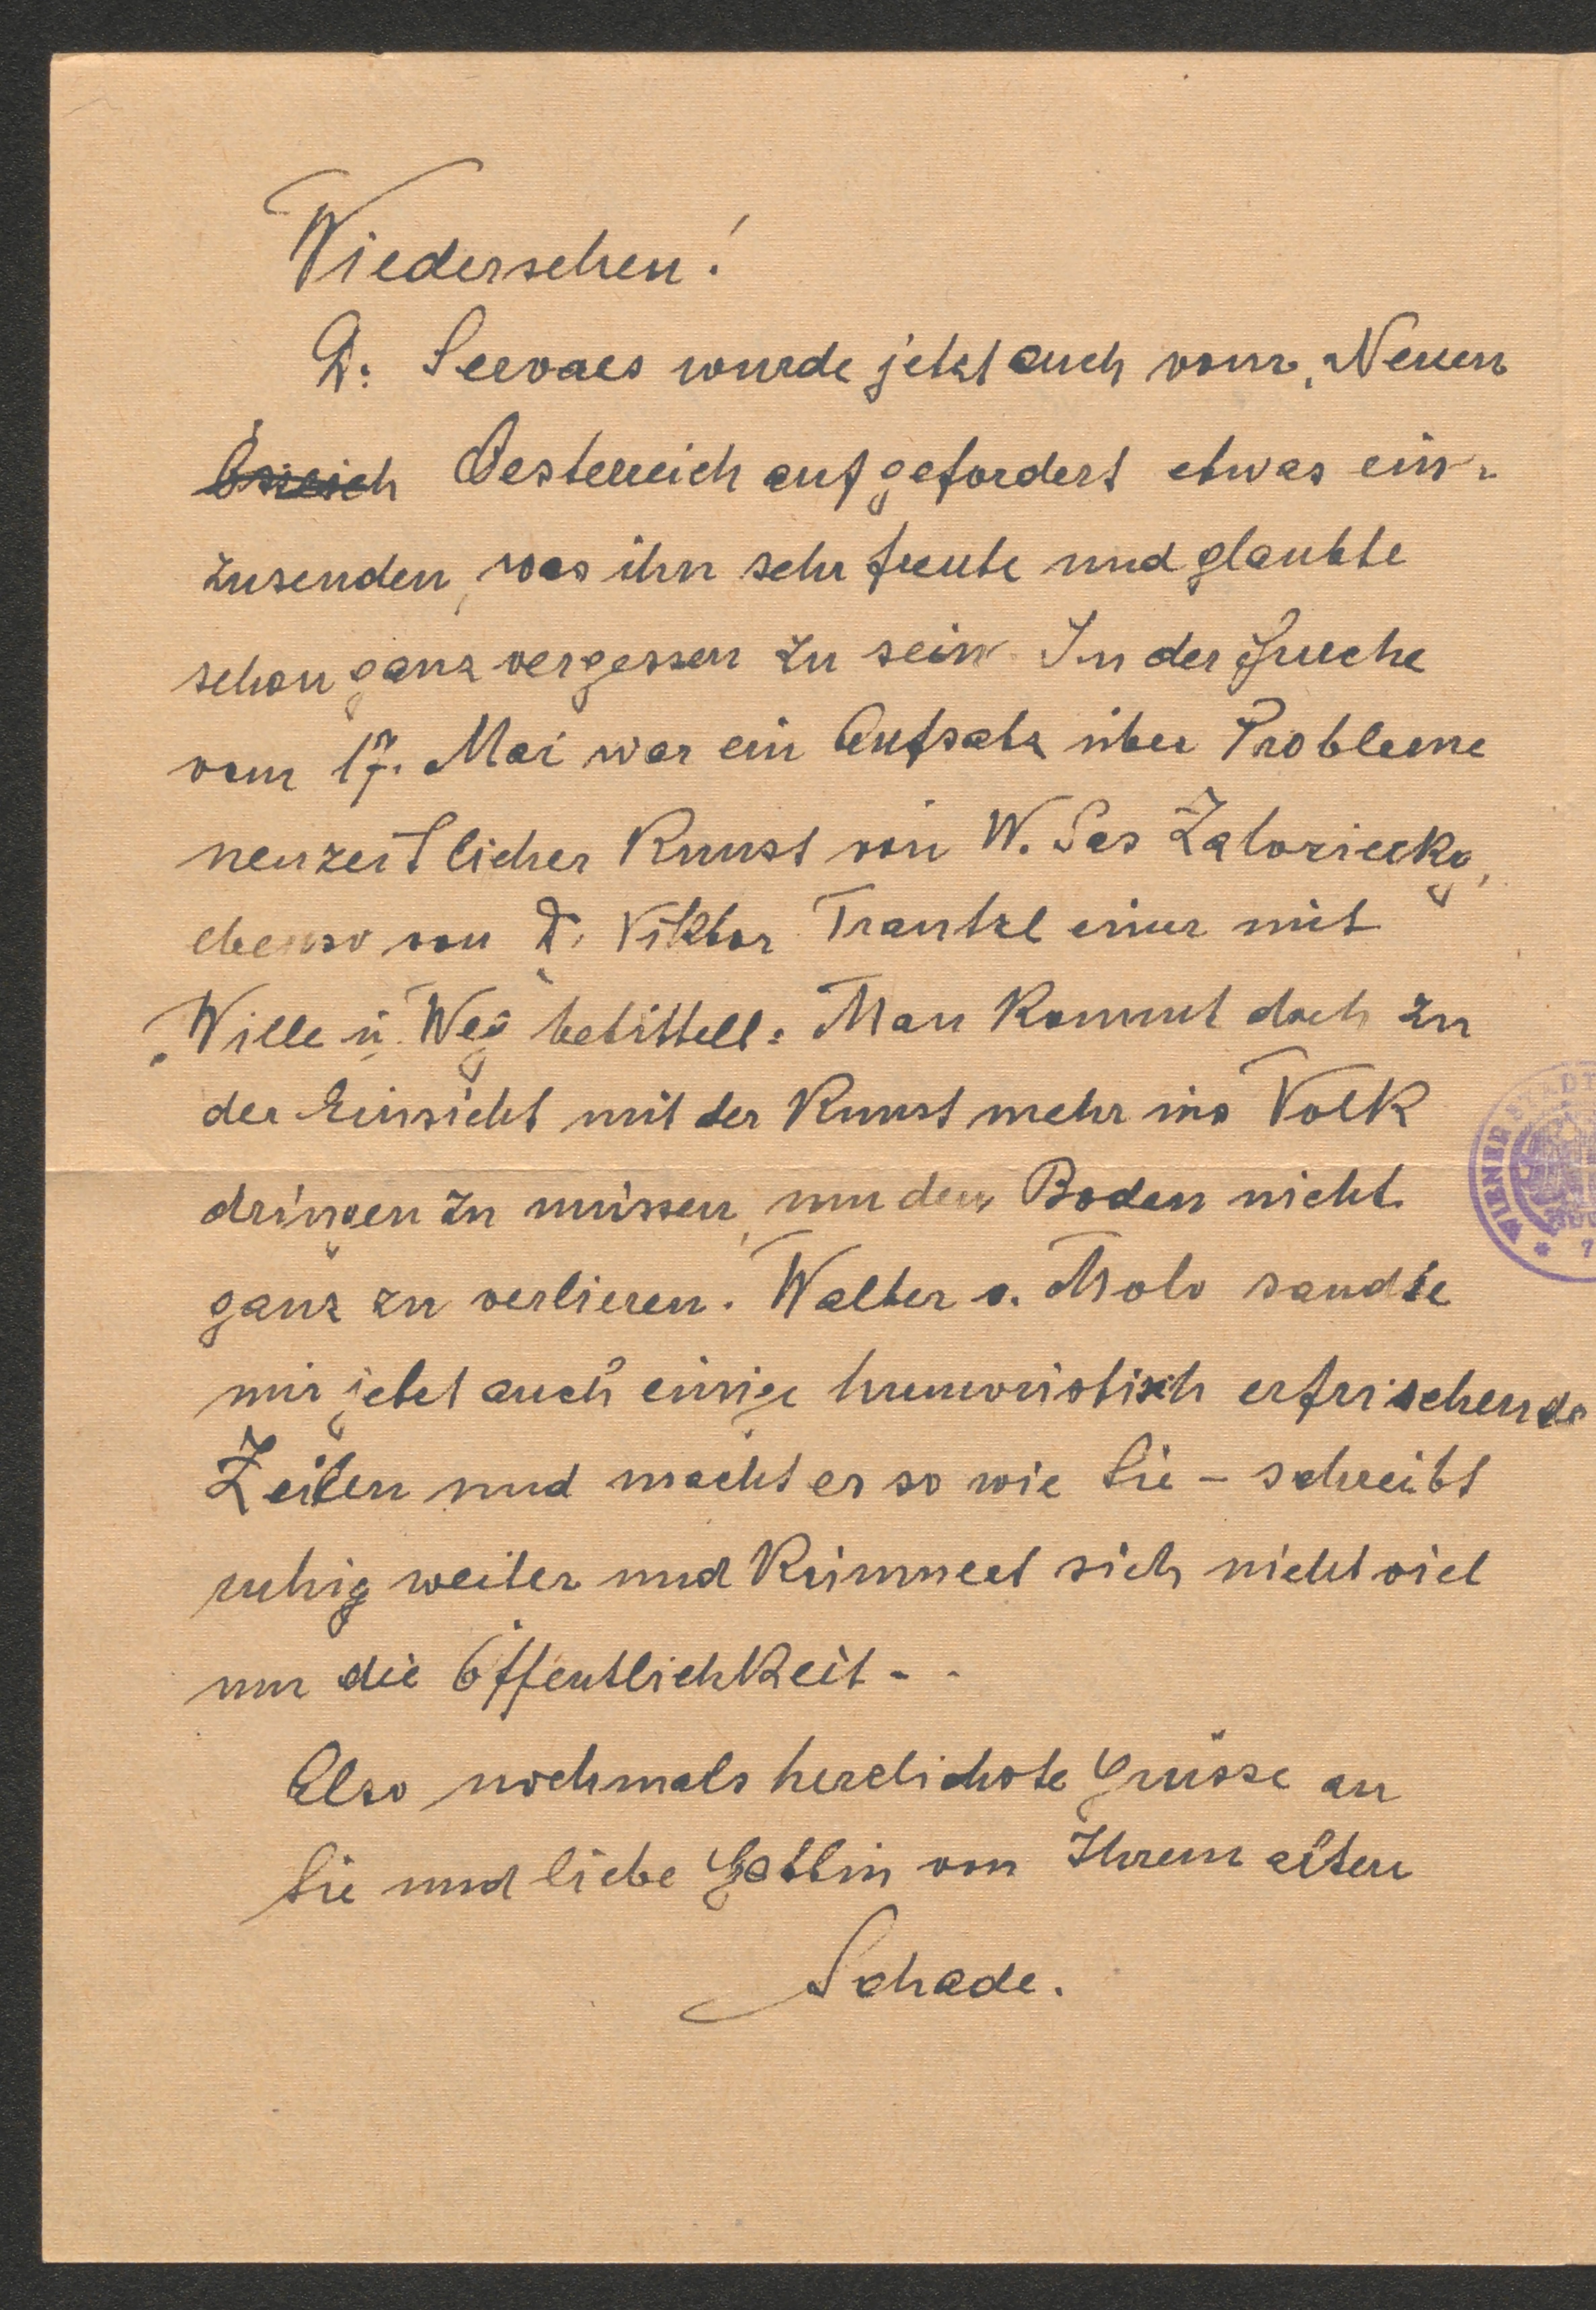 Wiedersehen!
Dr. Servaes wurde jetzt auch vom „Neuen
Oesterreich aufgefordert etwas ein-
zusenden, was ihn sehr freute und glaubte
schon ganz vergessen zu sein. In der Furche
vom 17. Mai war ein Aufsatz über Probleme
neuzeitlicher Kunst von W. Sas Zaloziecky,
ebenso von Dr. Viktor Trautzl einer mit
„Wille u. Weg" betittelt. Man kommt doch zu
der Einsicht mit der Kunst mehr ins Volk
dringen zu müssen, um den Boden nicht
ganz zu verlieren. Walter v. Molo sandte
mir jetzt auch einige humoristisch erfrischende
Zeilen und macht er so wie Sie – schreibt
ruhig weiter und kümmert sich nicht viel
um die Öffentlichkeit - -
Also nochmals herzlichste Grüsse an
Sie und liebe Gattin von Ihrem alten
Schade.
WIENER STADT